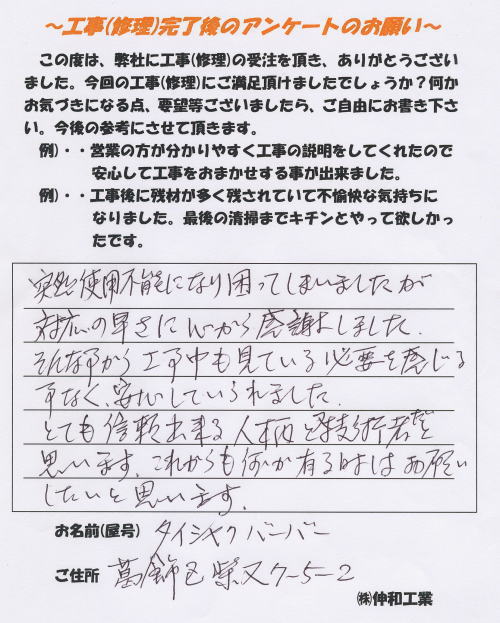 ～工事(修理)完了後のアンケートのお願い～
この度は、弊社に工事(修理)の受注を頂き、ありがとうござい
ました。今回の工事(修理)にご満足頂けましたでしょうか？何か
お気づきになる点、要望等ございましたら、ご自由にお書き下さ
い。今後の参考にさせて頂きます。
例)・・営業の方が分かりやすく工事の説明をしてくれたので
安心して工事をおまかせする事が出来ました。
例)・・工事後に残材が多く残されていて不愉快な気持ちに
なりました。最後の清掃までキチンとやって欲しかっ
たです。
突然使用不能になり困ってしまいましたが
対応の早さに心から感謝しました.
そんな事から工事中も見ている必要を感じる
事なく、安心していられました.
とても信頼出来る人柄と技術者だと
思います。これからも何か有る時はお願い
したいと思います。
お名前(屋号) タイシャクバーバー
ご住所 葛飾区柴又7-5-2
㈱伸和工業